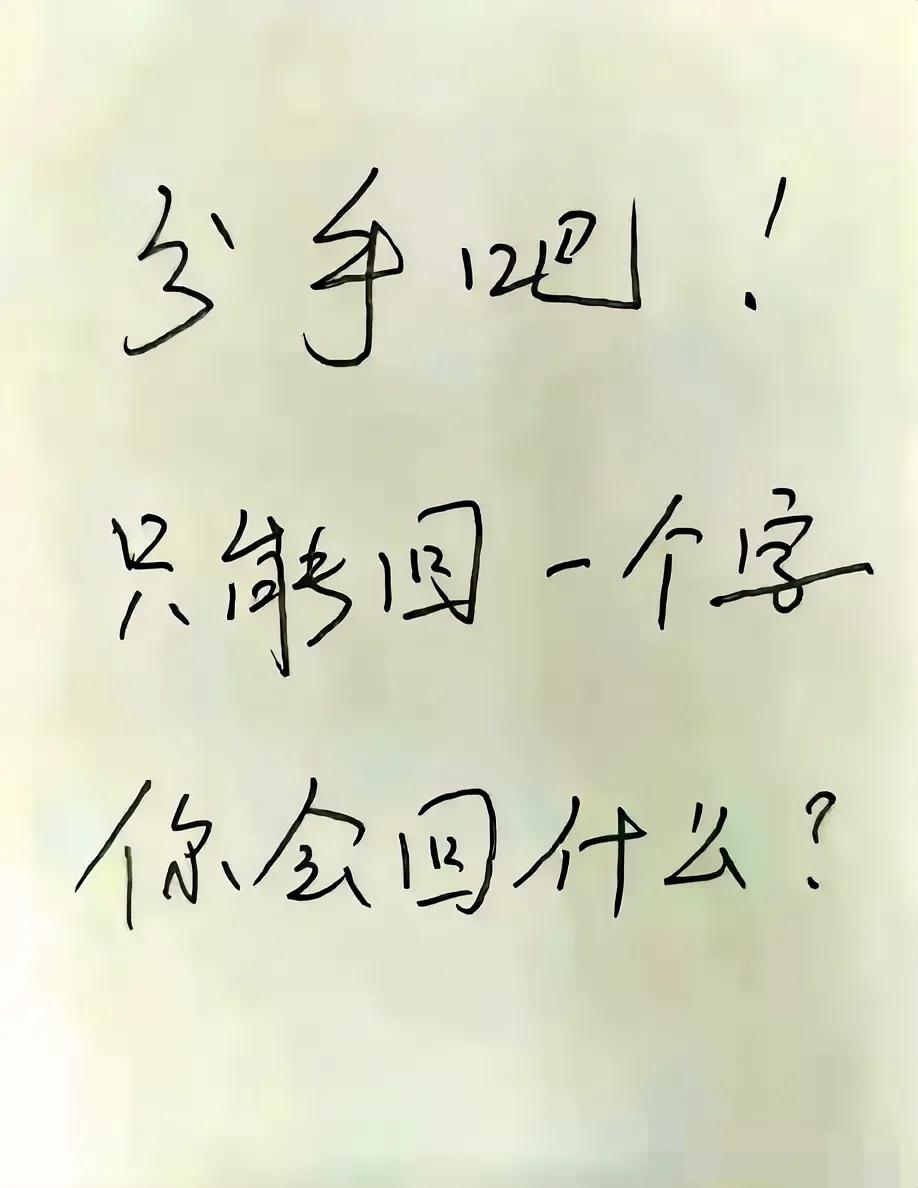 分手吧！
只能回一个字
你会回什么？